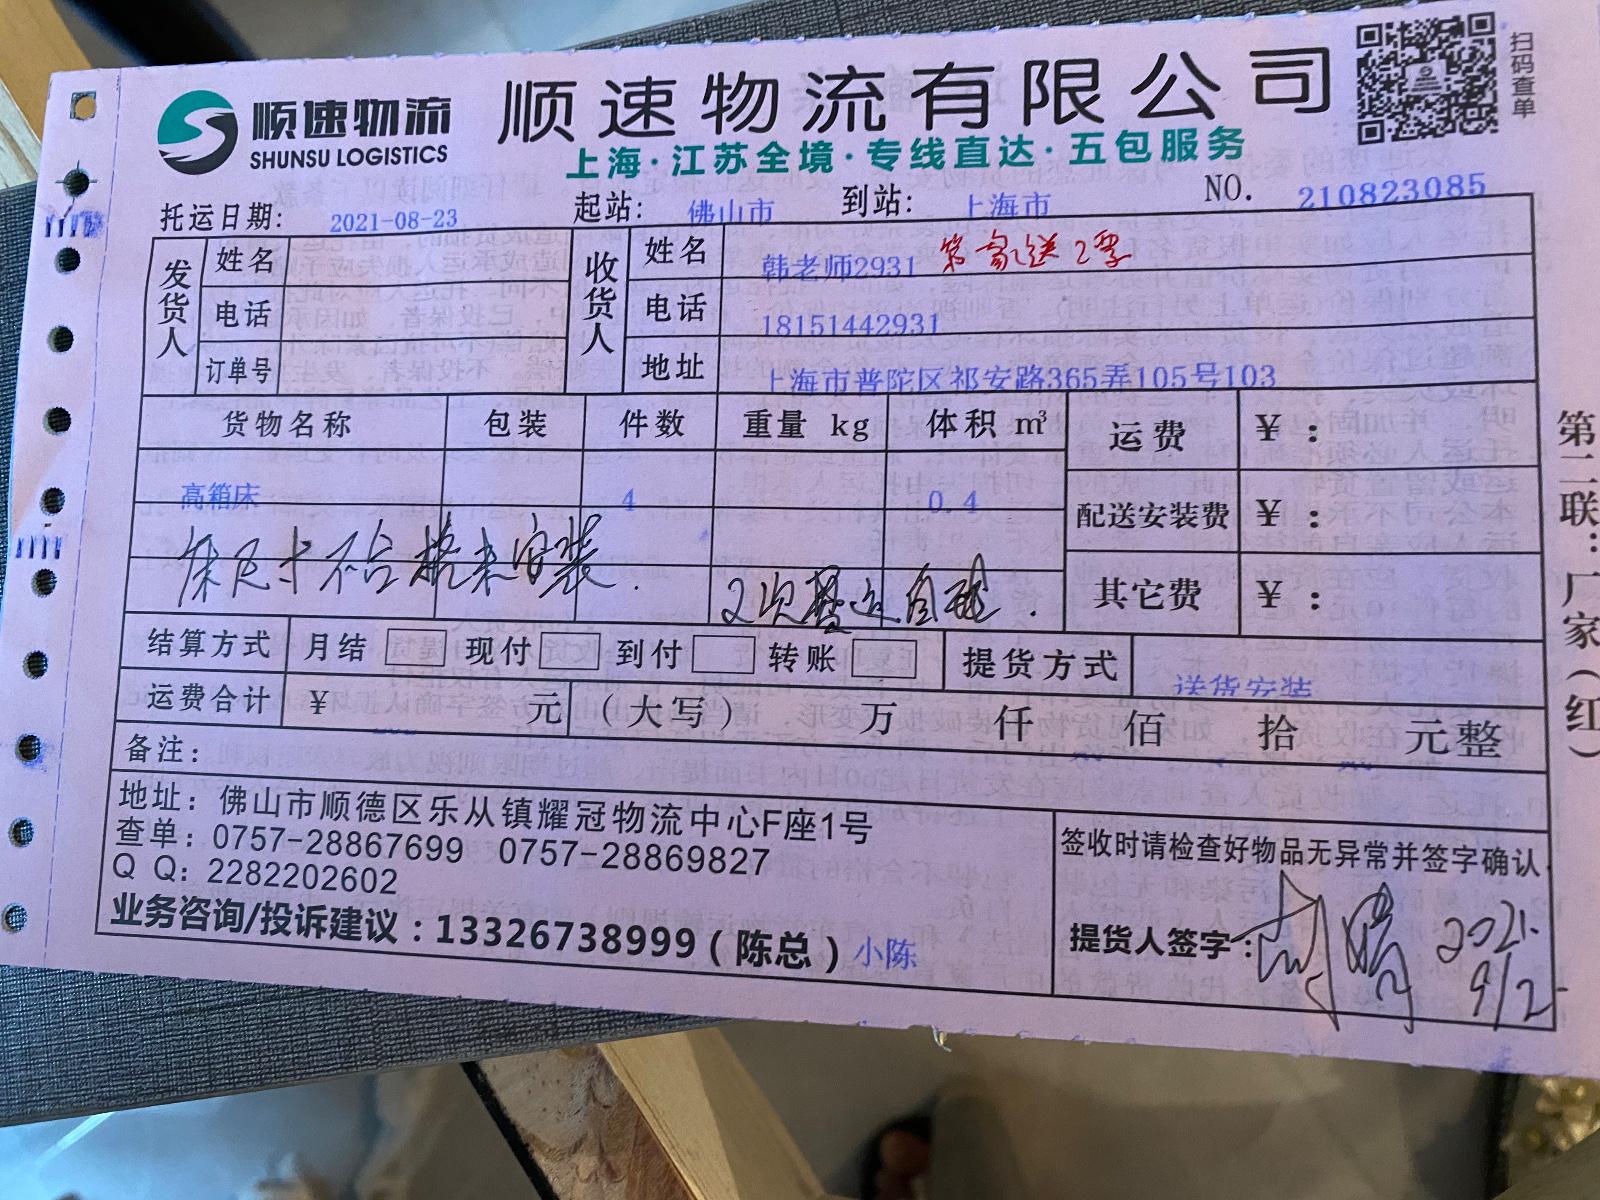 顺速物流
SHUNSU LOGISTICS
顺速物流有限公司
扫码查单
上海·江苏全境·专线直达·五包服务
托运日期: 2021-08-23 起站: 佛山市 到站: 上海市 NO. 210823085
发货人 姓名 收货人 姓名 韩老师2931 送2票
电话 电话 18151442931
订单号 地址 上海市普陀区祁安路365弄105号103
货物名称 包装 件数 重量 kg 体积 m³ 运费 ¥:
高箱床 4 0.4 配送安装费 ¥:
床尺寸不合格未安装. 2次搬运自理. 其它费 ¥:
结算方式 月结 现付 到付 转账 提货方式 送货安装
运费合计 ¥ 元 (大写) 万 仟 佰 拾 元整
备注:
地址: 佛山市顺德区乐从镇耀冠物流中心F座1号
查单: 0757-28867699 0757-28869827
Q Q: 2282202602
业务咨询/投诉建议:13326738999(陈总)小陈
签收时请检查好物品无异常并签字确认
提货人签字: 2021.
9/2
第二联:厂家(红)